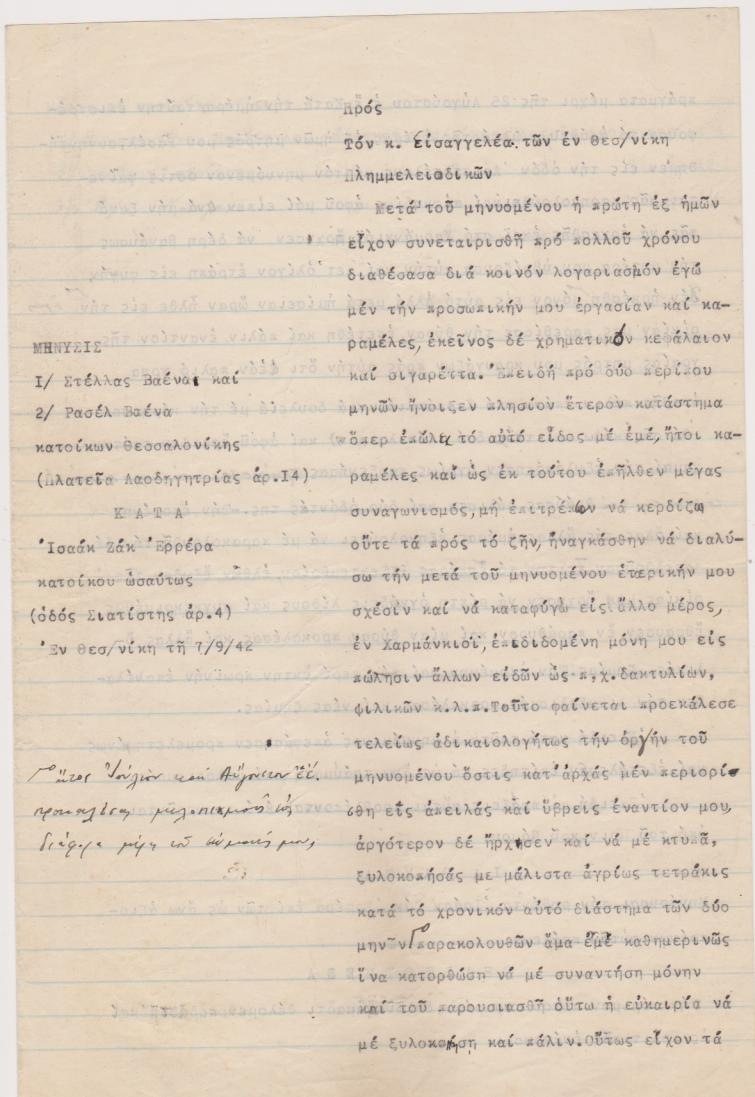 Πρός
Τόν κ. εἰσαγγελέα τῶν ἐν Θεσ/νίκη
Πλημμελειοδικῶν
Μετά τοῦ μηνυομένου ἡ πρώτη ἐξ ἡμῶν
εἶχον συνεταιρισθῆ πρό πολλοῦ χρόνου
διαθέσασα διά κοινόν λογαριασμόν ἐγώ
μέν τήν προσωπικήν μου ἐργασίαν καί κα-
ραμέλες, ἐκεῖνος δέ χρηματικόν κεφάλαιον
καί σιγαρέττα. Ἐπειδή πρό δύο περίπου
μηνῶν ἤνοιξεν πλησίον ἕτερον κατάστημα
ὅπερ ἐπώλει τό αὐτό εἶδος μέ ἐμέ, ἤτοι κα-
ραμέλες καί ὡς ἐκ τούτου ἐπῆλθεν μέγας
συναγωνισμός, μή ἐπιτρέπων νά κερδίζω
οὔτε τά πρός τό ζῆν, ἠναγκάσθην νά διαλύ-
σω τήν μετά τοῦ μηνυομένου ἑταιρικήν μου
σχέσιν καί νά καταφύγω εἰς ἄλλο μέρος,
ἐν Χαρμάνκιοϊ, ἐπιδιδομένη μόνη μου εἰς
πώλησιν ἄλλων εἰδῶν ὡς π.χ. δακτυλίων,
ψιλικῶν κ.λ.π. Τοῦτο φαίνεται προεκάλεσε
τελείως ἀδικαιολογήτως τήν ὀργήν τοῦ
μηνυομένου ὅστις κατ' ἀρχάς μέν περιορί-
σθη εἰς ἀπειλάς καί ὕβρεις ἐναντίον μου,
ἀργότερον δέ ἤρχησεν καί νά μέ κτυπᾶ,
ξυλοκοπήσάς με μάλιστα ἀγρίως τετράκις
κατά τό χρονικόν αὐτό διάστημα τῶν δύο
μηνῶν Γ παρακολουθῶν ἅμα ἐμέ καθημερινῶς
ἵνα κατορθώση νά μέ συναντήση μόνην
καί τοῦ παρουσιασθῆ οὕτω ἡ εὐκαιρία νά
μέ ξυλοκοπήση καί πάλιν. Οὕτως εἶχον τά
ΜΗΝΥΣΙΣ
Ι/ Στέλλας Βαένα καί
2/ Ρασέλ Βαένα
κατοίκων Θεσσαλονίκης
(Πλατεῖα Λαοδηγητρίας ἀρ.Ι4)
Κ Α Τ Α
Ἰσαάκ Ζάκ Ἐρρέρα
κατοίκου ὡσαύτως
(ὁδός Σιατίστης ἀρ.4)
Ἐν Θεσ/νίκη τῆ 7/9/42
Γ ἤτοι Ἰούλιον καί Αὔγουστον ἐ.ἔ.
προκαλέσας μώλωπας εἰς
διάφορα μέρη τοῦ σώματός μου,